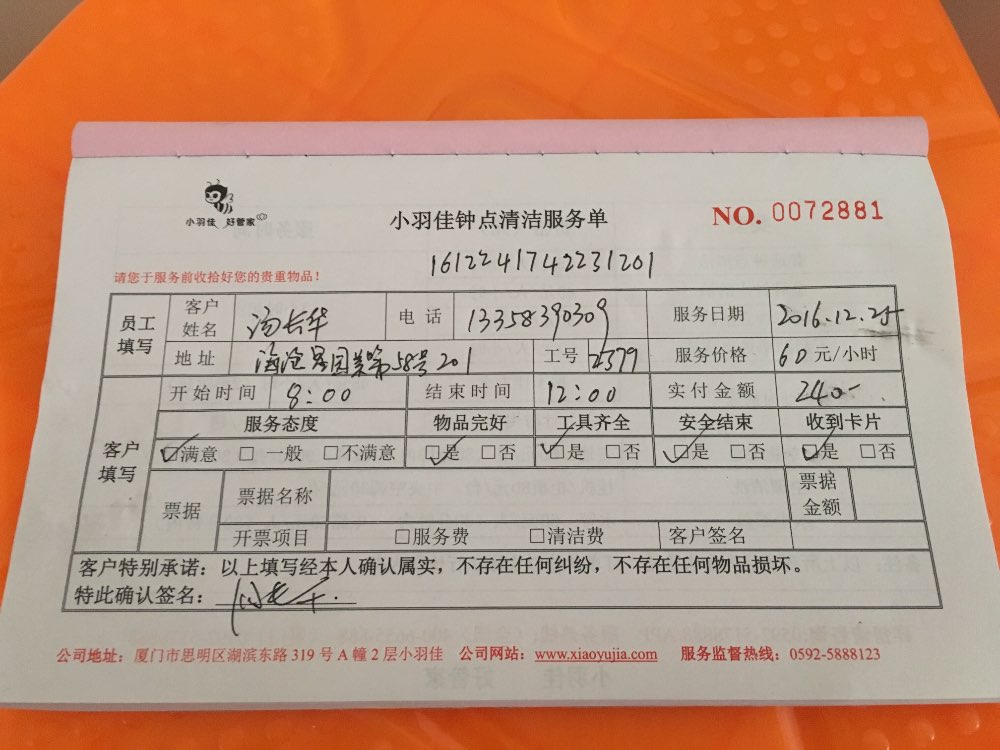 小羽佳 好管家
小羽佳钟点清洁服务单
NO. 0072881
1612241742231201
请您于服务前收拾好您的贵重物品！
员工填写 客户姓名 汤长华 电话 13358390309 服务日期 2016.12.25
地址 海沧 58号201 工号 2379 服务价格 60元/小时
客户填写 开始时间 8:00 结束时间 12:00 实付金额 240-
服务态度 物品完好 工具齐全 安全结束 收到卡片
☑满意 □一般 □不满意 ☑是 □否 ☑是 □否 ☑是 □否 ☑是 □否
票据 票据名称 票据金额
开票项目 □服务费 □清洁费 客户签名
客户特别承诺：以上填写经本人确认属实，不存在任何纠纷，不存在任何物品损坏。
特此确认签名：
公司地址：厦门市思明区湖滨东路 319 号 A 幢 2 层小羽佳 公司网站：www.xiaoyujia.com 服务监督热线：0592-5888123